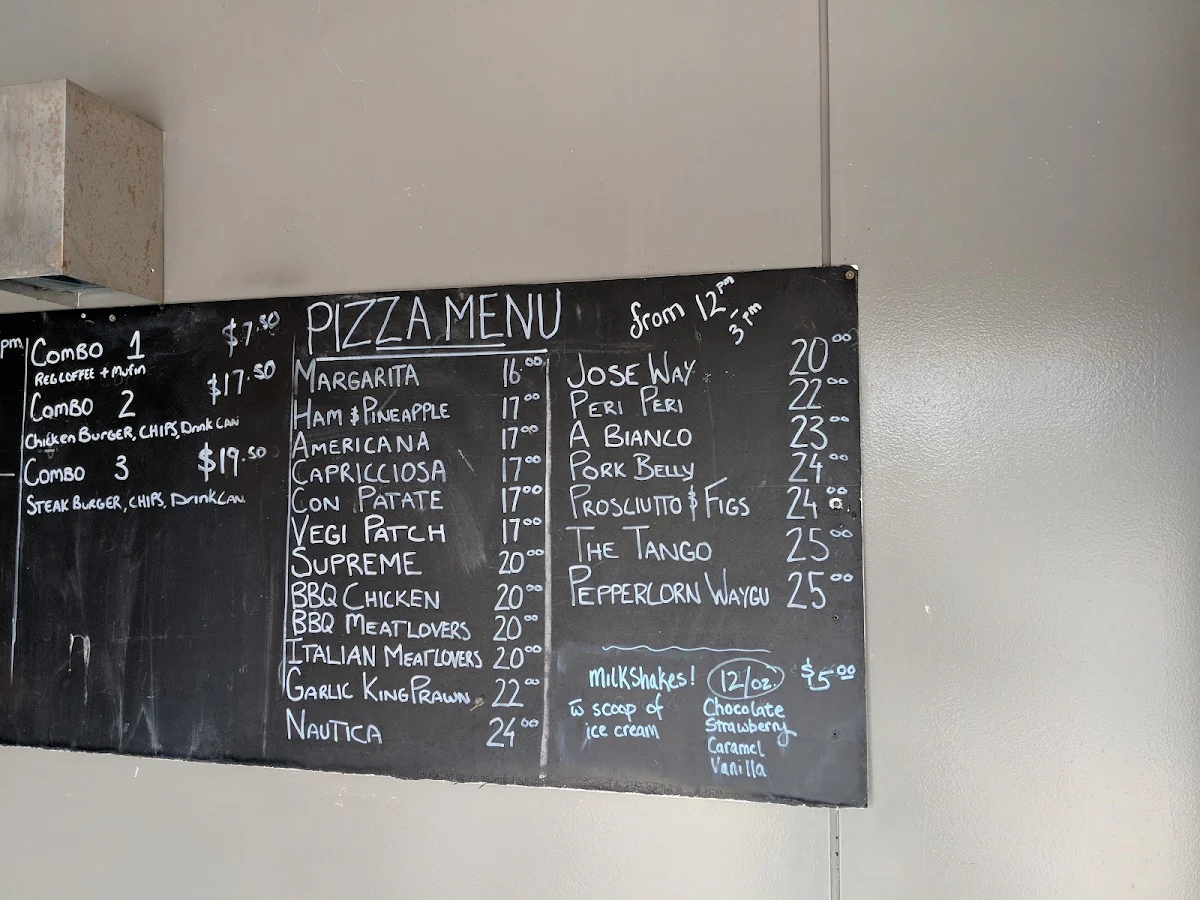 pm
COMBO 1 $7.50
REG COFFEE + Mufin
COMBO 2 $17.50
Chicken BURGER, CHIPS, Drink CAN
COMBO 3 $19.50
STEAK BURGER, CHIPS, Drink CAN
PIZZA MENU
from 12pm - 3pm
MARGARITA 16.00
HAM & PINEAPPLE 17.00
AMERICANA 17.00
CAPRICCIOSA 17.00
CON PATATE 17.00
VEGI PATCH 17.00
SUPREME 20.00
BBQ CHICKEN 20.00
BBQ MEATLOVERS 20.00
ITALIAN MEATLOVERS 20.00
GARLIC KING PRAWN 22.00
NAUTICA 24.00
JOSE WAY 20.00
PERI PERI 22.00
A BIANCO 23.00
PORK BELLY 24.00
PROSCIUTTO & FIGS 24.00
THE TANGO 25.00
PEPPERCORN WAYGU 25.00
MilKShakes! 12/oz. $5.00
w scoop of
ice cream
Chocolate
Strawberry
Caramel
Vanilla